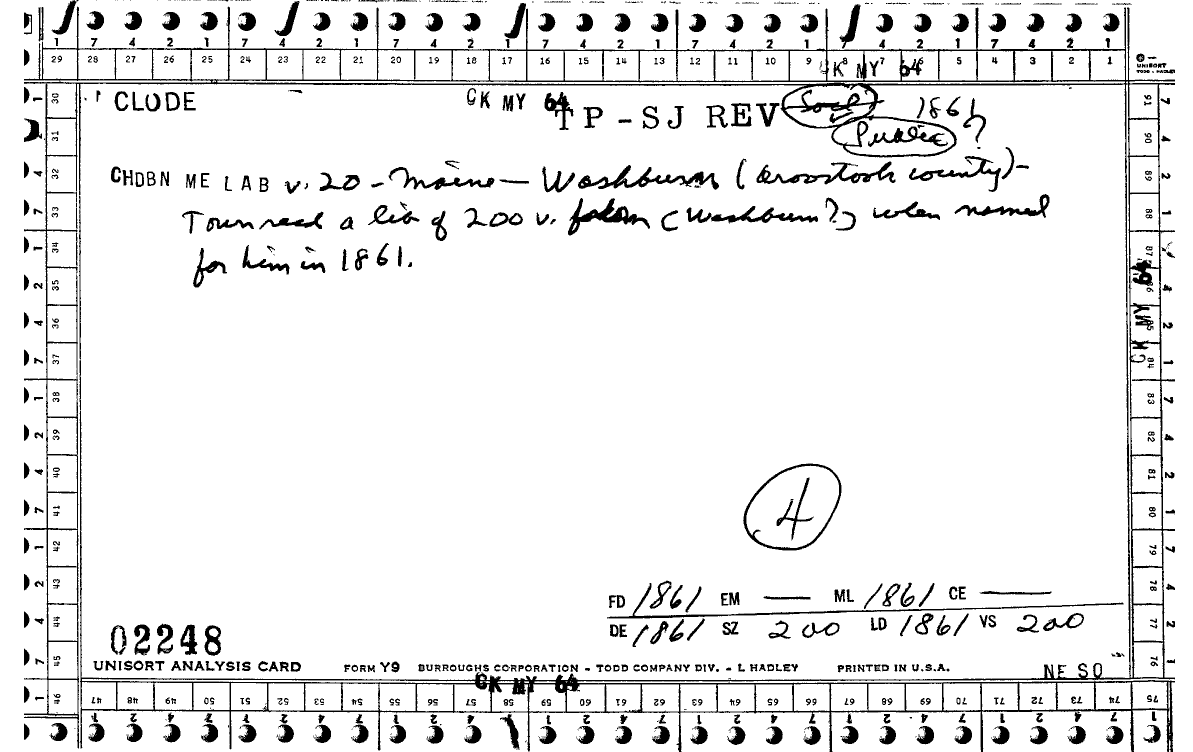 7 4 2 1 7 4 2 1 7 4 2 1 7 4 2 1 7 4 2 1 7 4 2 1
29 28 27 26 25 24 23 22 21 20 19 18 17 16 15 14 13 12 11 10 9 8 7 6 5 4 3 2 1
CK MY 64
UNISORT
TODD - HADLEY
CLODE CK MY 64 TP-SJ REV Socl 1861
Public ?
CHDBN ME LAB v. 20 - Maine - Washburn (Aroostook county) -
Town recd a lib of 200 v. from (Washburn?) when named
for him in 1861.
4
FD 1861 EM — ML 1861 CE —
DE 1861 SZ 200 LD 1861 VS 200
02248
UNISORT ANALYSIS CARD FORM Y9 BURROUGHS CORPORATION - TODD COMPANY DIV. - L HADLEY PRINTED IN U.S.A. NE SO
CK MY 64
30 31 32 33 34 35 36 37 38 39 40 41 42 43 44 45 46
47 48 49 50 51 52 53 54 55 56 57 58 59 60 61 62 63 64 65 66 67 68 69 70 71 72 73 74 75
91 90 89 88 87 86 85 84 83 82 81 80 79 78 77 76
CK MY 64